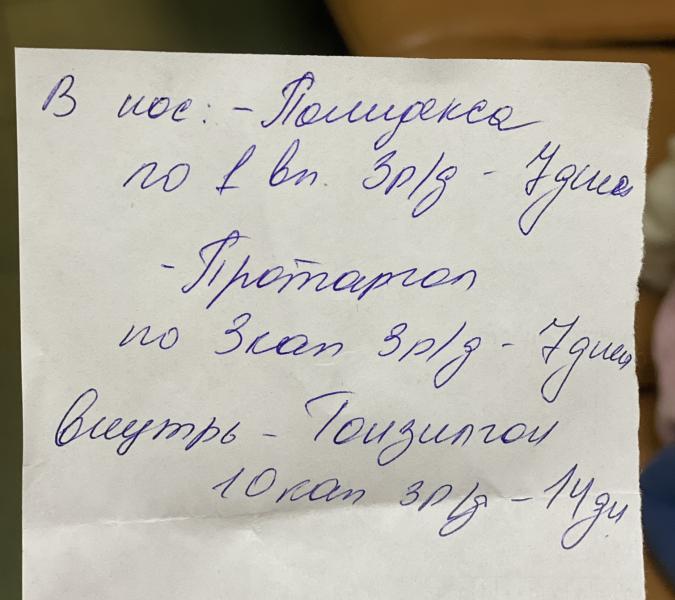 В нос: - Полидекса
по 1 вп. 3р/д - 7дней
- Протаргол
по 3кап 3р/д - 7дней
Внутрь - Тонзилгон
10кап 3р/д - 14дн